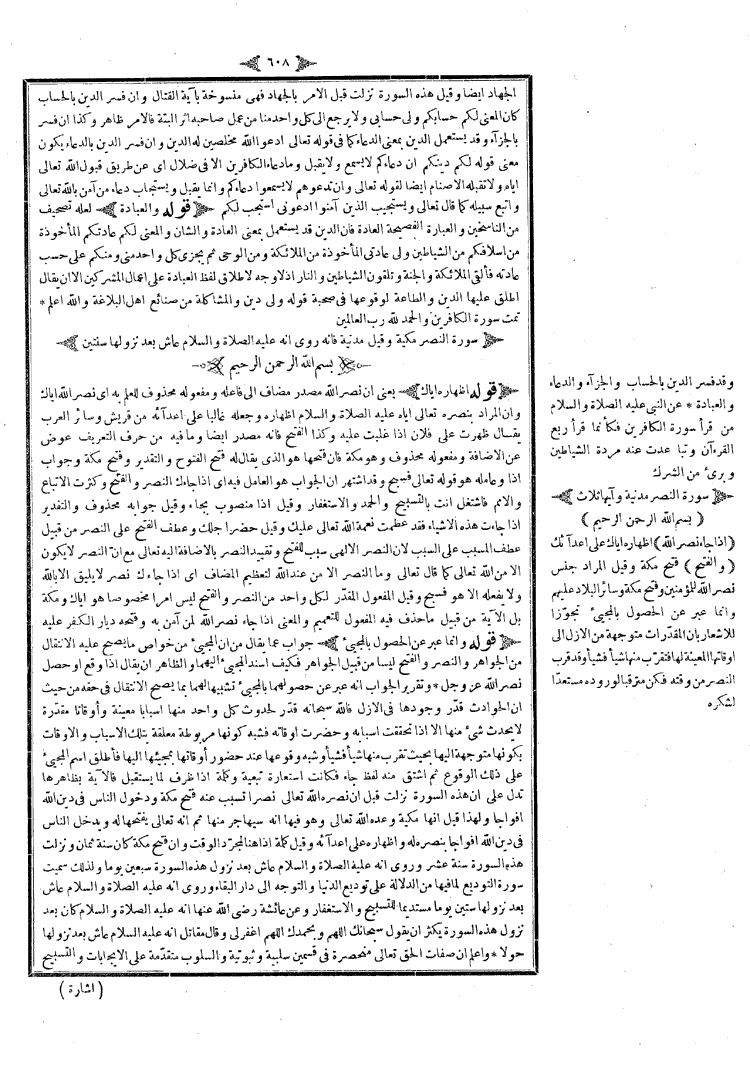 ٦٠٨
الجهاد ايضا وقيل هذه السورة نزلت قبل الامر بالجهاد فهى منسوخة بآية القتال وان فسر الدين بالحساب
كان المعنى لكم حسابكم ولى حسابى ولا يرجع الى كل واحد منا من عمل صاحبه اثر البتة فالامر ظاهر وكذا ان فسر
بالجزآء وقد يستعمل الدين بمعنى الدعاء كما فى قوله تعالى ادعوا الله مخلصين له الدين وان فسر الدين بالدعاء يكون
معنى قوله لكم دينكم ان دعاءكم لا يسمع ولا يقبل وما دعاء الكافرين الا فى ضلال اى عن طريق قبول الله تعالى
اياه ولا تقبله الاصنام ايضا لقوله تعالى وان تدعوهم لا يسمعوا دعاءكم وانما يقبل ويستجاب دعاء من آمن بالله تعالى
واتبع سبيله كما قال تعالى ويستجيب الذين آمنوا ادعونى استجب لكم ﴿ قوله والعبادة ﴾ لعله تصحيف
من الناسخين والعبارة الفصيحة العادة فان الدين قد يستعمل بمعنى العادة والشان والمعنى لكم عادتكم المأخوذة
من اسلافكم من الشياطين ولى عادتى المأخوذة من الملائكة ومن الوحى ثم يجزى كل واحد منى ومنكم على حسب
عادته فألقى الملائكة والجنة وتلقون الشياطين والنار اذ لا وجه لاطلاق لفظ العبادة على اعمال المشركين الا ان يقال
اطلق عليها الدين والطاعة لوقوعها فى صحبة قوله ولى دين والمشاكلة من صنائع اهل البلاغة والله اعلم *
تمت سورة الكافرين والحمد لله رب العالمين
﴿ سورة النصر مكية وقيل مدنية فانه روى انه عليه الصلاة والسلام عاش بعد نزولها سنتين ﴾
﴿ بسم الله الرحمن الرحيم ﴾
﴿ قوله اظهاره اياك ﴾ يعنى ان نصر الله مصدر مضاف الى فاعله ومفعوله محذوف للعلم به اى نصر الله اياك
وان المراد بنصره تعالى اياه عليه الصلاة والسلام اظهاره وجعله غالبا على اعدآئه من قريش وسائر العرب
يقسال ظهرت على فلان اذا غلبت عليه وكذا الفتح فانه مصدر ايضا وما فيه من حرف التعريف عوض
عن الاضافة ومفعوله محذوف وهو مكة فان فتحها هو الذى يقال له فتح الفتوح والتقدير وفتح مكة وجواب
اذا وعامله هو قوله تعالى فسبح وقد اشتهر ان الجواب هو العامل فيه اى اذا جاءك النصر والفتح وكثرت الاتباع
والامم فاشتغل انت بالتسبيح والحمد والاستغفار وقيل اذا منصوب بجاء وقيل جوابه محذوف والتقدير
اذا جاءت هذه الاشياء فقد عظمت نعمة الله تعالى عليك وقيل حضر اجلك وعطف الفتح على النصر من قبيل
عطف المسبب على السبب لان النصر الالهى سبب للفتح وتقييد النصر بالاضافة اليه تعالى مع ان النصر لا يكون
الا من الله تعالى كما قال تعالى وما النصر الا من عند الله لتعظيم المضاف اى اذا جاءك نصر لا يليق الا بالله
ولا يفعله الا هو فسبح وقيل المفعول المقدر لكل واحد من النصر والفتح ليس امرا مخصوصا هو اياك ومكة
بل الآية من قبيل ما حذف فيه المفعول للتعميم والمعنى اذا جاء نصر الله لمن آمن به وفتحه ديار الكفر عليه
﴿ قوله وانما عبر عن الحصول بالمجئ ﴾ جواب عما يقال من ان المجئ من خواص ما يصح عليه الانتقال
من الجواهر والنصر والفتح ليسا من قبيل الجواهر فكيف اسند المجئ اليهما والظاهر ان يقال اذا وقع او حصل
نصر الله عز وجل * وتقرير الجواب انه عبر عن حصولهما بالمجئ تشبيها لهما بما يصح الانتقال فى حقه من حيث
ان الحوادث قدر وجودها فى الازل فالله سبحانه قدر لحدوث كل واحد منها اسبابا معينة واوقاتا مقدرة
لا يحدث شئ منها الا اذا تحققت اسبابه وحضرت اوقاته فشبه كونها مربوطة معلقة بتلك الاسباب والاوقات
بكونها متوجهة اليها بحيث تقرب منها شيأ فشيأ وشبه وقوعها عند حضور اوقاتها بمجيئها اليها فأطلق اسم المجئ
على ذلك الوقوع ثم اشتق منه لفظ جاء فكانت استعارة تبعية وكلمة اذا ظرف لما يستقبل فالآية بظاهرها
تدل على ان هذه السورة نزلت قبل ان نصره الله تعالى نصرا تسبب عنه فتح مكة ودخول الناس فى دين الله
افواجا ولهذا قيل انها مكية وعده الله تعالى وهو فيها انه سيهاجر منها ثم انه تعالى يفتحها له ويدخل الناس
فى دين الله افواجا بنصره له واظهاره على اعدآئه وقيل كلمة اذا هنا لمجرد الوقت وان فتح مكة كان سنة ثمان ونزلت
هذه السورة سنة عشر وروى انه عليه الصلاة والسلام عاش بعد نزول هذه السورة سبعين يوما ولذلك سميت
سورة التوديع لما فيها من الدلالة على توديع الدنيا والتوجه الى دار البقاء وروى انه عليه الصلاة والسلام عاش
بعد نزولها ستين يوما مستديما للتسبيح والاستغفار وعن عائشة رضى الله عنها انه عليه الصلاة والسلام كان بعد
نزول هذه السورة يكثر ان يقول سبحانك اللهم وبحمدك اللهم اغفر لى وقال مقاتل انه عليه السلام عاش بعد نزولها
حولا * واعلم ان صفات الحق تعالى منحصرة فى قسمين سلبية وثبوتية والسلوب متقدمة على الايجابات والتسبيح
( اشارة )
وقد فسر الدين بالحساب والجزآء والدعاء
والعبادة * عن النبى عليه الصلاة والسلام
من قرأ سورة الكافرين فكأنما قرأ ربع
القرءآن وتباعدت عنه مردة الشياطين
وبرئ من الشرك
﴿ سورة النصر مدنية وآيها ثلاث ﴾
( بسم الله الرحمن الرحيم )
(اذا جاء نصر الله) اظهاره اياك على اعدآئك
( والفتح ) فتح مكة وقيل المراد جنس
نصر الله للمؤمنين وفتح مكة وسائر البلاد عليهم
وانما عبر عن الحصول بالمجئ تجوزا
للاشعار بان المقدرات متوجهة من الازل الى
اوقاتها المعينة لها فتقرب منها شيأ فشيأ وقد قرب
النصر من وقته فكن مترقبا لوروده مستعدا
لشكره